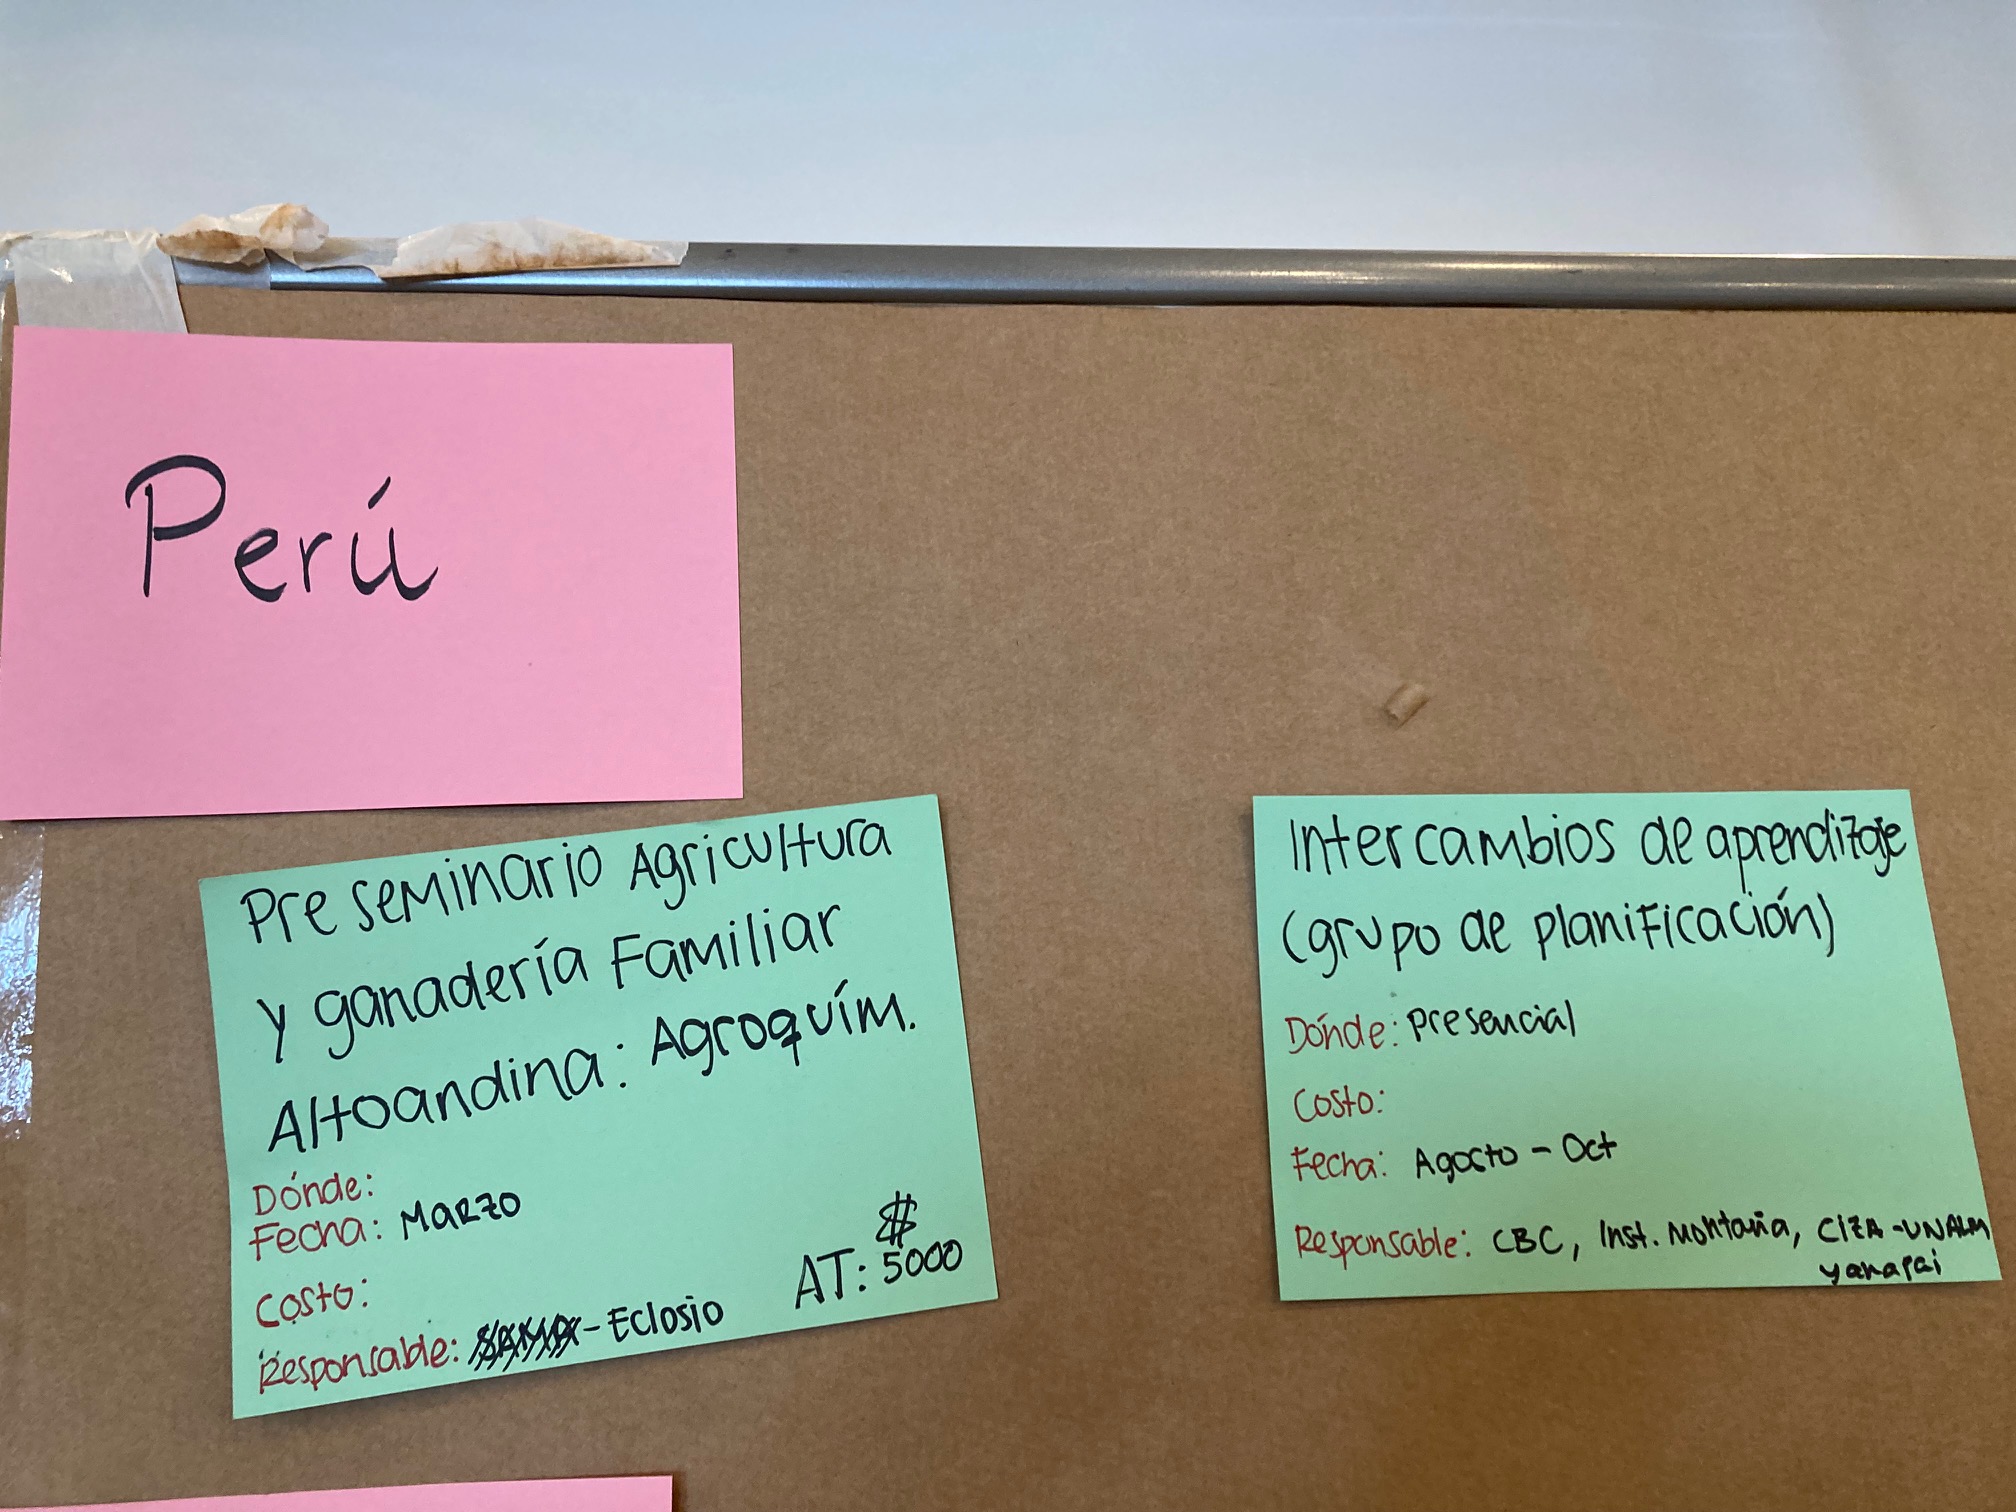 Perú
Pre seminario Agricultura
y ganadería Familiar
Altoandina: Agroquím.
Dónde:
Fecha: Marzo
Costo:
$
AT: 5000
Responsable: - Eclosio
Intercambios de aprendizaje
(grupo de planificación)
Dónde: presencial
Costo:
Fecha: Agosto - Oct
Responsable: CBC, Inst. Montaña, CIZA-UNALM
yanapai